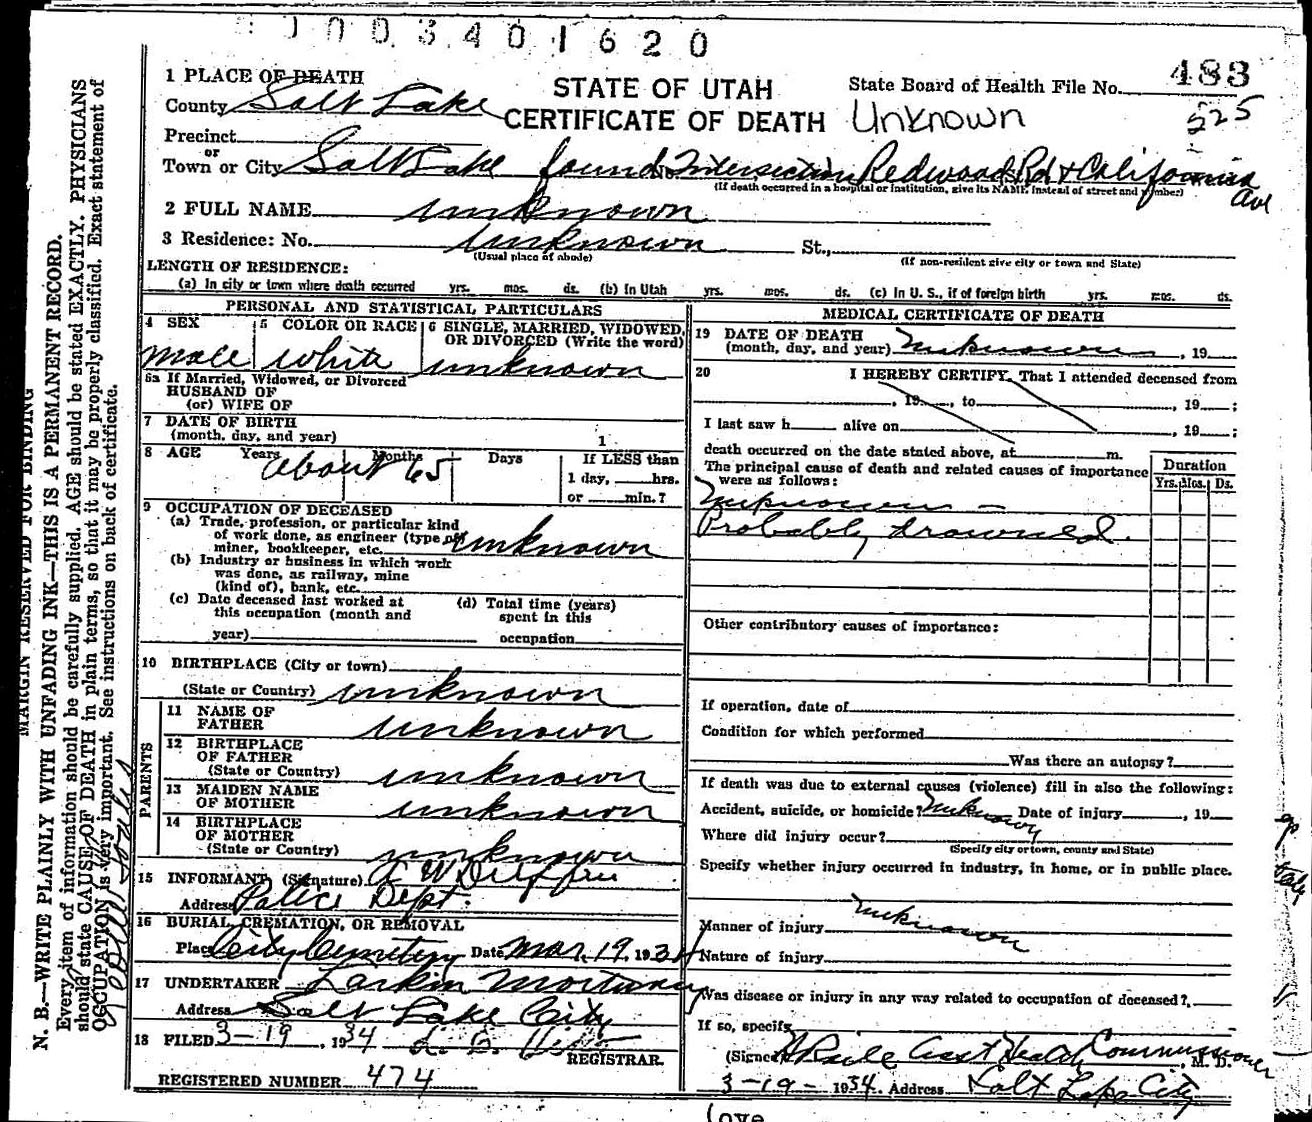 0003401620
1 PLACE OF DEATH
STATE OF UTAH
State Board of Health File No. 483
County Salt Lake
CERTIFICATE OF DEATH Unknown
225
Precinct
or
Town or City Salt Lake found No. Intersection Redwood Rd + California Ave
(If death occurred in a hospital or institution, give its NAME instead of street and number)
2 FULL NAME unknown
3 Residence: No. unknown St.,
(Usual place of abode) (If non-resident give city or town and State)
LENGTH OF RESIDENCE:
(a) In city or town where death occurred yrs. mos. ds. (b) In Utah yrs. mos. ds. (c) In U. S., if of foreign birth yrs. mos. ds.
PERSONAL AND STATISTICAL PARTICULARS
4 SEX
male
5 COLOR OR RACE
white
6 SINGLE, MARRIED, WIDOWED,
OR DIVORCED (Write the word)
unknown
6a If Married, Widowed, or Divorced
HUSBAND OF
(or) WIFE OF
7 DATE OF BIRTH
(month, day, and year) 1
8 AGE Years Months Days
about 65
If LESS than
1 day, hrs.
or min.?
9 OCCUPATION OF DECEASED
(a) Trade, profession, or particular kind
of work done, as engineer (type of
miner, bookkeeper, etc. unknown
(b) Industry or business in which work
was done, as railway, mine
(kind of), bank, etc.
(c) Date deceased last worked at
this occupation (month and
year)
(d) Total time (years)
spent in this
occupation
10 BIRTHPLACE (City or town)
(State or Country) unknown
PARENTS
11 NAME OF
FATHER unknown
12 BIRTHPLACE
OF FATHER
(State or Country) unknown
13 MAIDEN NAME
OF MOTHER unknown
14 BIRTHPLACE
OF MOTHER
(State or Country) unknown
15 INFORMANT (Signature)
Address Police Dept.
16 BURIAL, CREMATION, OR REMOVAL
Place City Cemetery Date Mar. 19, 1934
17 UNDERTAKER Larkin Mortuary
Address Salt Lake City
18 FILED 3-19, 1934
REGISTRAR.
REGISTERED NUMBER 474
MEDICAL CERTIFICATE OF DEATH
19 DATE OF DEATH
(month, day, and year) unknown, 19
20 I HEREBY CERTIFY, That I attended deceased from
, 19 , to , 19 ;
I last saw h alive on , 19 ;
death occurred on the date stated above, at m.
The principal cause of death and related causes of importance
were as follows:
Duration
Yrs. Mos. Ds.
Unknown -
Probably drowned.
Other contributory causes of importance:
If operation, date of
Condition for which performed
Was there an autopsy?
If death was due to external causes (violence) fill in also the following:
Accident, suicide, or homicide? unknown Date of injury , 19
Where did injury occur?
(Specify city or town, county and State)
Specify whether injury occurred in industry, in home, or in public place.
Manner of injury unknown
Nature of injury
Was disease or injury in any way related to occupation of deceased?
If so, specify
(Signed) Asst Health Commissioner, M. D.
3-19-1934. Address Salt Lake City
MARGIN RESERVED FOR BINDING
N. B.—WRITE PLAINLY WITH UNFADING INK—THIS IS A PERMANENT RECORD.
Every item of information should be carefully supplied. AGE should be stated EXACTLY. PHYSICIANS
should state CAUSE OF DEATH in plain terms, so that it may be properly classified. Exact statement of
OCCUPATION is very important. See instructions on back of certificate.